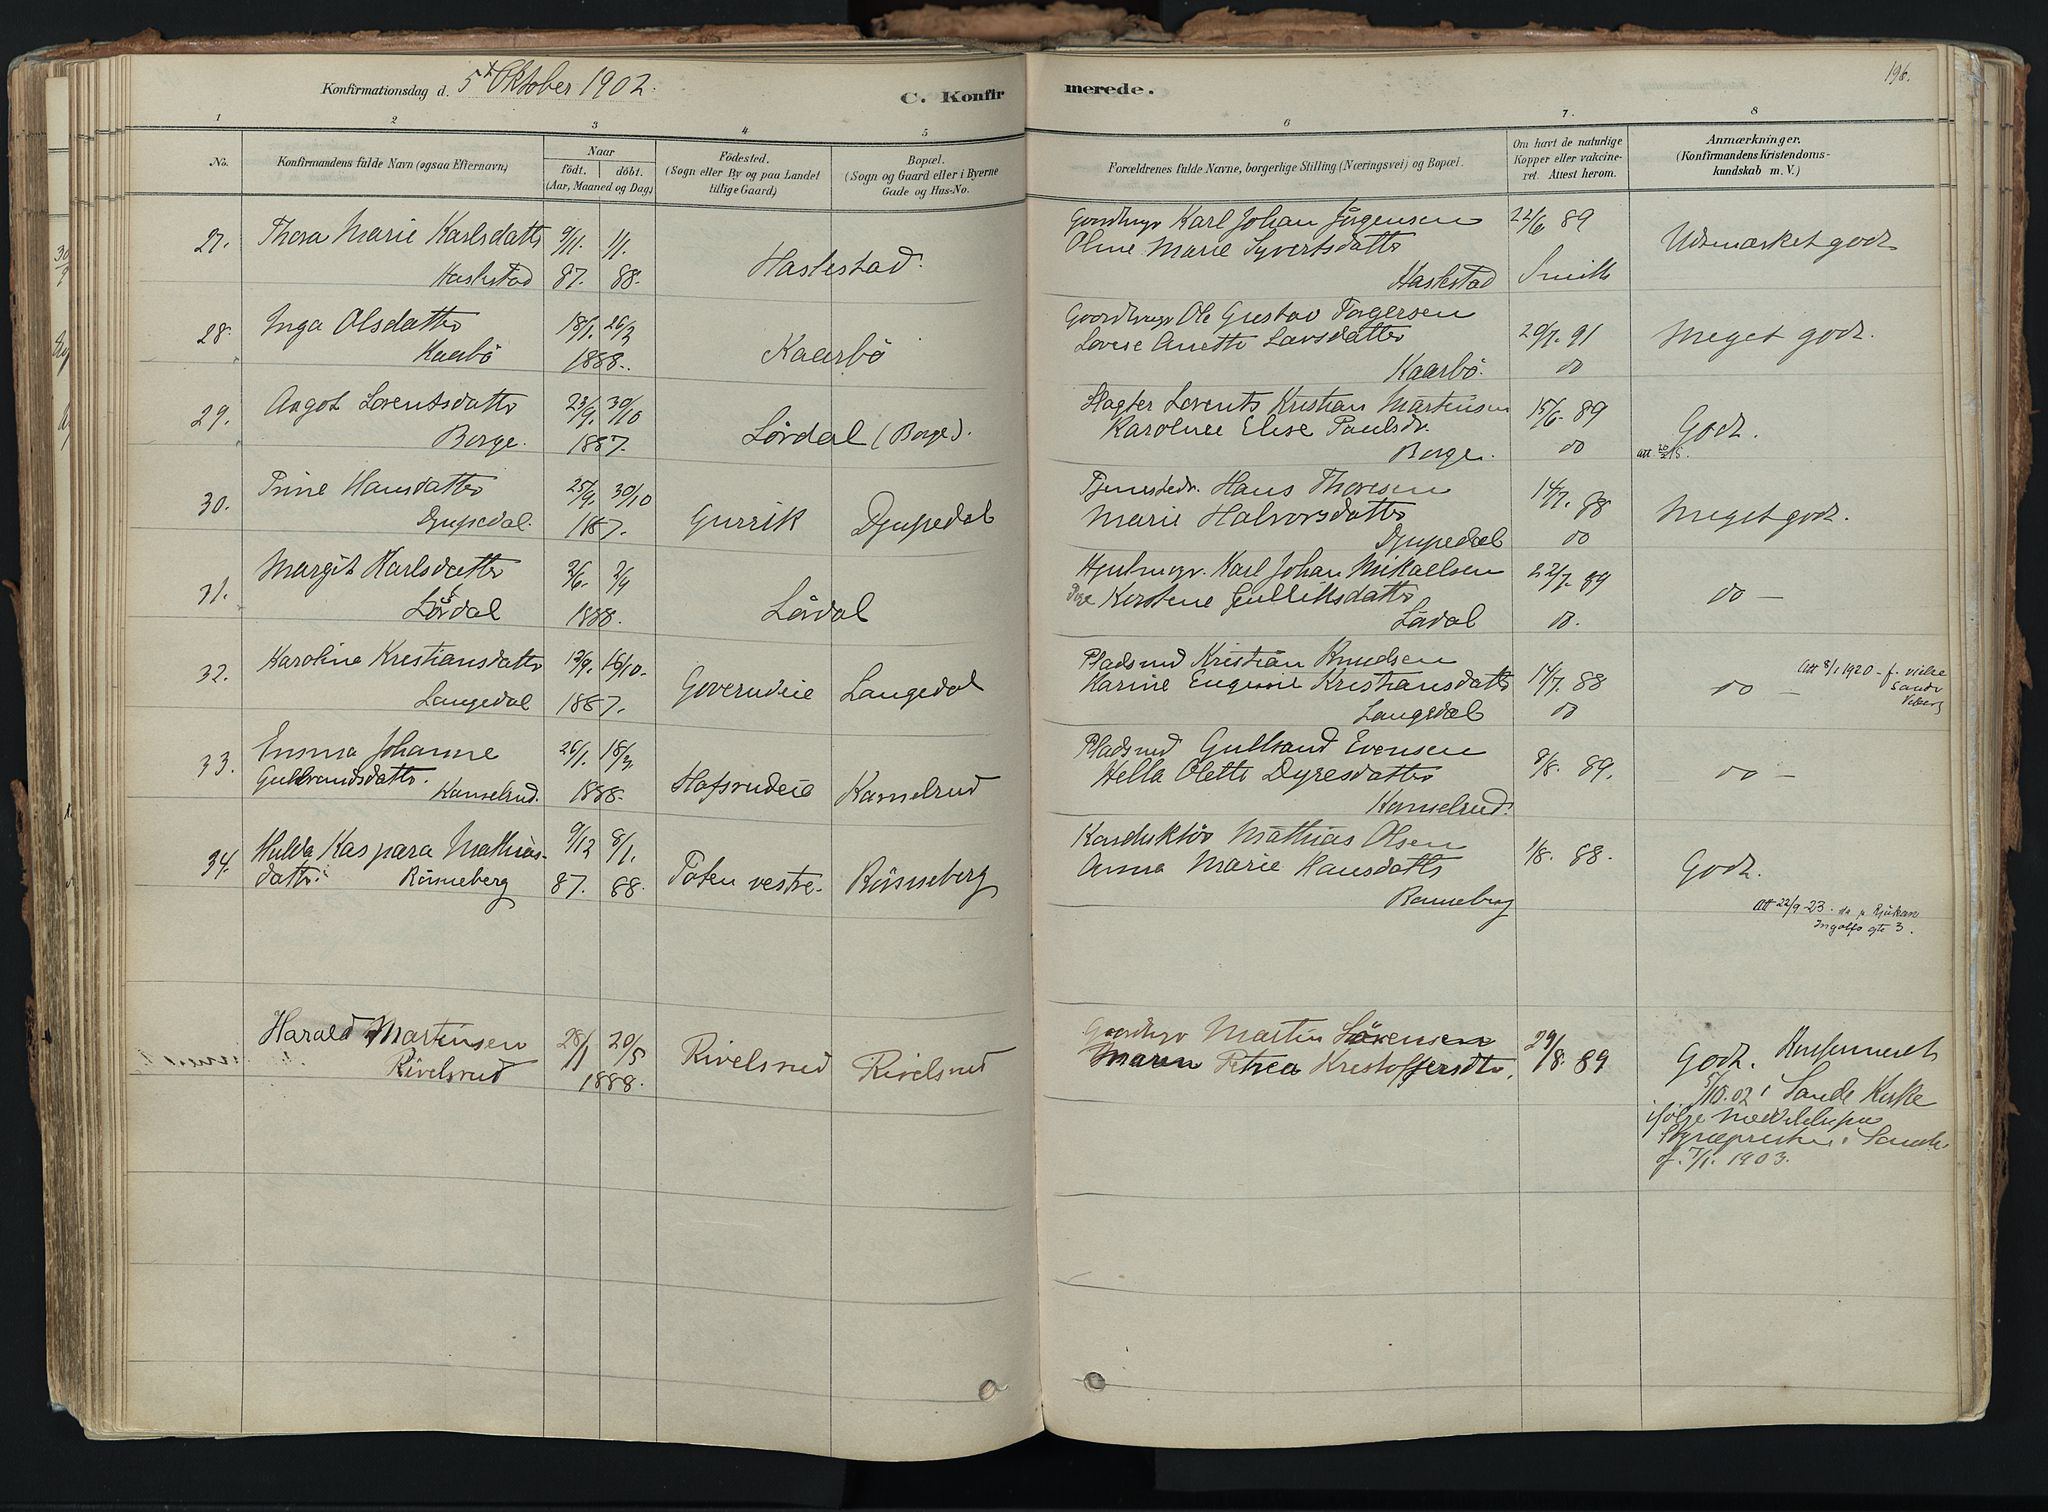 196.
Konfirmationsdag d. 5te Oktober 1902.
C. Konfirmerede.
1 2 3 4 5 6 7. 8
No.
Konfirmandens fulde Navn (ogsaa Efternavn)
Naar
födt. döbt.
(Aar, Maaned og Dag)
Födested.
(Sogn eller By og paa Landet
tillige Gaard)
Bopæl.
(Sogn og Gaard eller i Byerne
Gade og Hus-No.
Forældrenes fulde Navne, borgerlige Stilling (Næringsvei) og Bopæl.
Om havt de naturlige
Kopper eller vakcine-
ret. Attest herom.
Anmærkninger.
(Konfirmandens Kristendoms-
kundskab m. V.)
27. Thora Marie Karlsdatter 9/11. 1/1.
Haslestad 87. 88. Haslestad.
Gaardbrgr Karl Johan Jörgensen 22/6 89
Oline Marie Syvertsdatter Udmærket godt
Haslestad Smith
28. Inga Olsdatter 18/1. 26/3
Kaarbö 1888. Kaarbö
Gaardbrgr Ole Gustav Torgersen
Lovise Anette Larsdatter 20/7. 91 Meget godt.
Kaarbö. do
29. Aagot Lorentsdatter 23/9. 30/10
Borge. 1887. Lördal (Borge).
Slagter Lorents Kristian Martensen 15/6. 89
Karoline Elise Paulsdr. Godt.
Borge. do
30. Trine Hansdatter 25/9. 30/10
Djupedal. 1887. Gurrik Djupedal
Tjenestedr. Hans Thoresen 14/7. 88
Marie Halvorsdatter Meget godt.
Djupedal do
31. Margit Karlsdatter 2/6. 2/9
Lördal 1888. Lördal
Hjulmgr. Karl Johan Mikaelsen 22/7. 89
Kirstine Gulliksdatter do —
Lördal do.
32. Karoline Kristiansdatter 13/9. 16/10.
Langedal 1887. Goverudeie Langedal
Pladsmd Kristian Knudsen
Karine Eugenie Kristiansdatter 14/7. 88 do —
Langedal do
Att 8/1 1920 - f. vielse
Sande
33. Emma Johanne 26/1. 18/3.
Gulbrandsdatter. Kamelrud. 1888. Hafsrudeie Kamelrud
Pladsmd Gulbrand Evensen
Hella Olette Dyresdatter 8/8. 89. do —
Kamelrud.
34. Hulda Kaspara Mathias- 9/12 8/1.
datter. Rönneberg 87. 88. Toten vestre. Rönneberg
Konduktör Mathias Olsen
Anna Marie Hansdatter 1/8. 88. Godt.
Ronneberg
Att 22/9 23. Rjukan
Ingolfs gte 3.
Harald Martinsen 28/1 20/5
Rivelsrud 1888. Rivelsrud Rivelsrud
Gaardbgr Martin Sörensen
Maren Petrea Kristoffersdtr. 29/8. 89
Godt. Konfirmeret
5/10.02 i Sande Kirke
ifölge meddelelse
Sognepresten i Sande
af. 7/1. 1903.